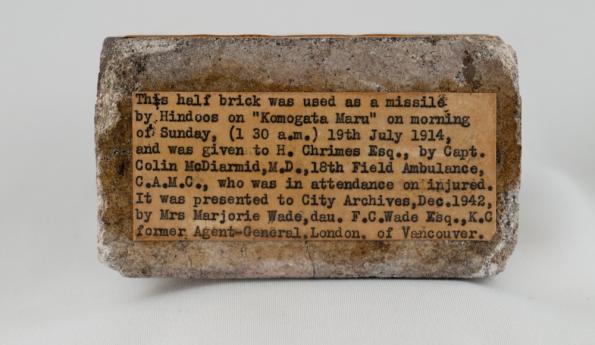 This half brick was used as a missile
by Hindoos on "Komogata Maru" on morning
of Sunday, (1 30 a.m.) 19th July 1914,
and was given to H. Chrimes Esq., by Capt.
Colin McDiarmid,M.D.,18th Field Ambulance,
C.A.M.C., who was in attendance on injured.
It was presented to City Archives,Dec.1942,
by Mrs Marjorie Wade,dau. F.C.Wade Esq.,K.C
former Agent-General,London, of Vancouver.